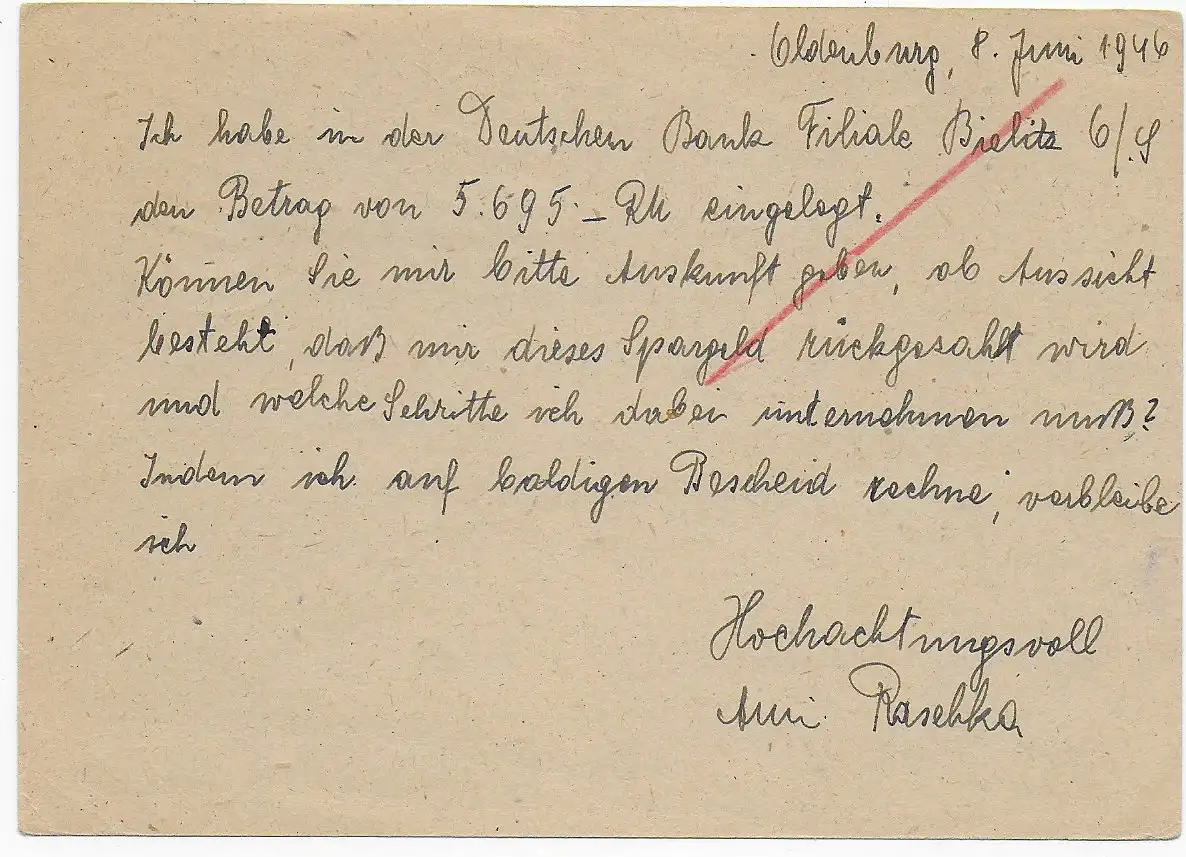 Oldenburg, 8. Juni 1946
Ich habe in der Deutschen Bank Filiale Bielitz O/.S
den Betrag von 5.695.– RM eingelegt.
Können Sie mir bitte Auskunft geben, ob Aussicht
besteht, daß mir dieses Spargeld rückgezahlt wird
und welche Schritte ich dabei unternehmen muß?
Indem ich auf baldigen Bescheid rechne, verbleibe
ich
Hochachtungsvoll
Raschka